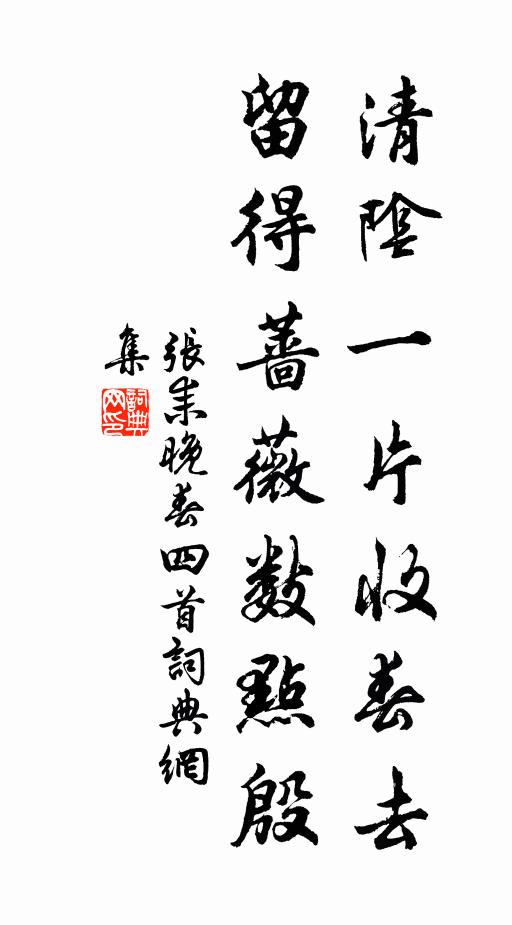 清陰一片收春去
留得薔薇數點殷
張耒晚春四首詞典網
集
詞典網印